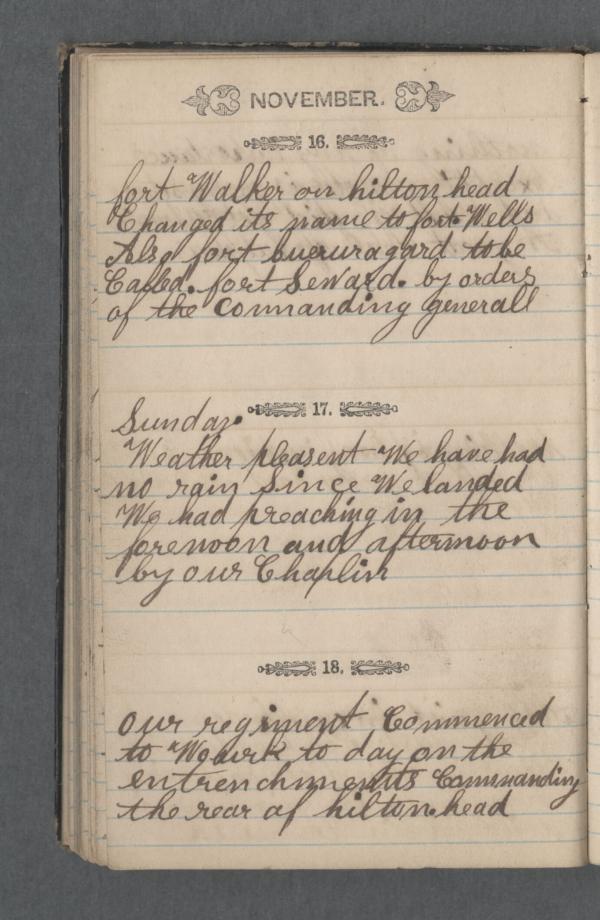 NOVEMBER.
16.
fort Walker on hilton head
Changed its name to fort Wells
Also fort bueruragard to be
Called. fort Seward. by orders
of the Commanding generall
17.
Sunday.
Weather pleasent We have had
no rain Since We landed
We had preaching in the
forenoon and afternoon
by our Chaplin
18.
our regiment Commenced
to Wourk to day on the
entrenchments Commanding
the rear of hilton head